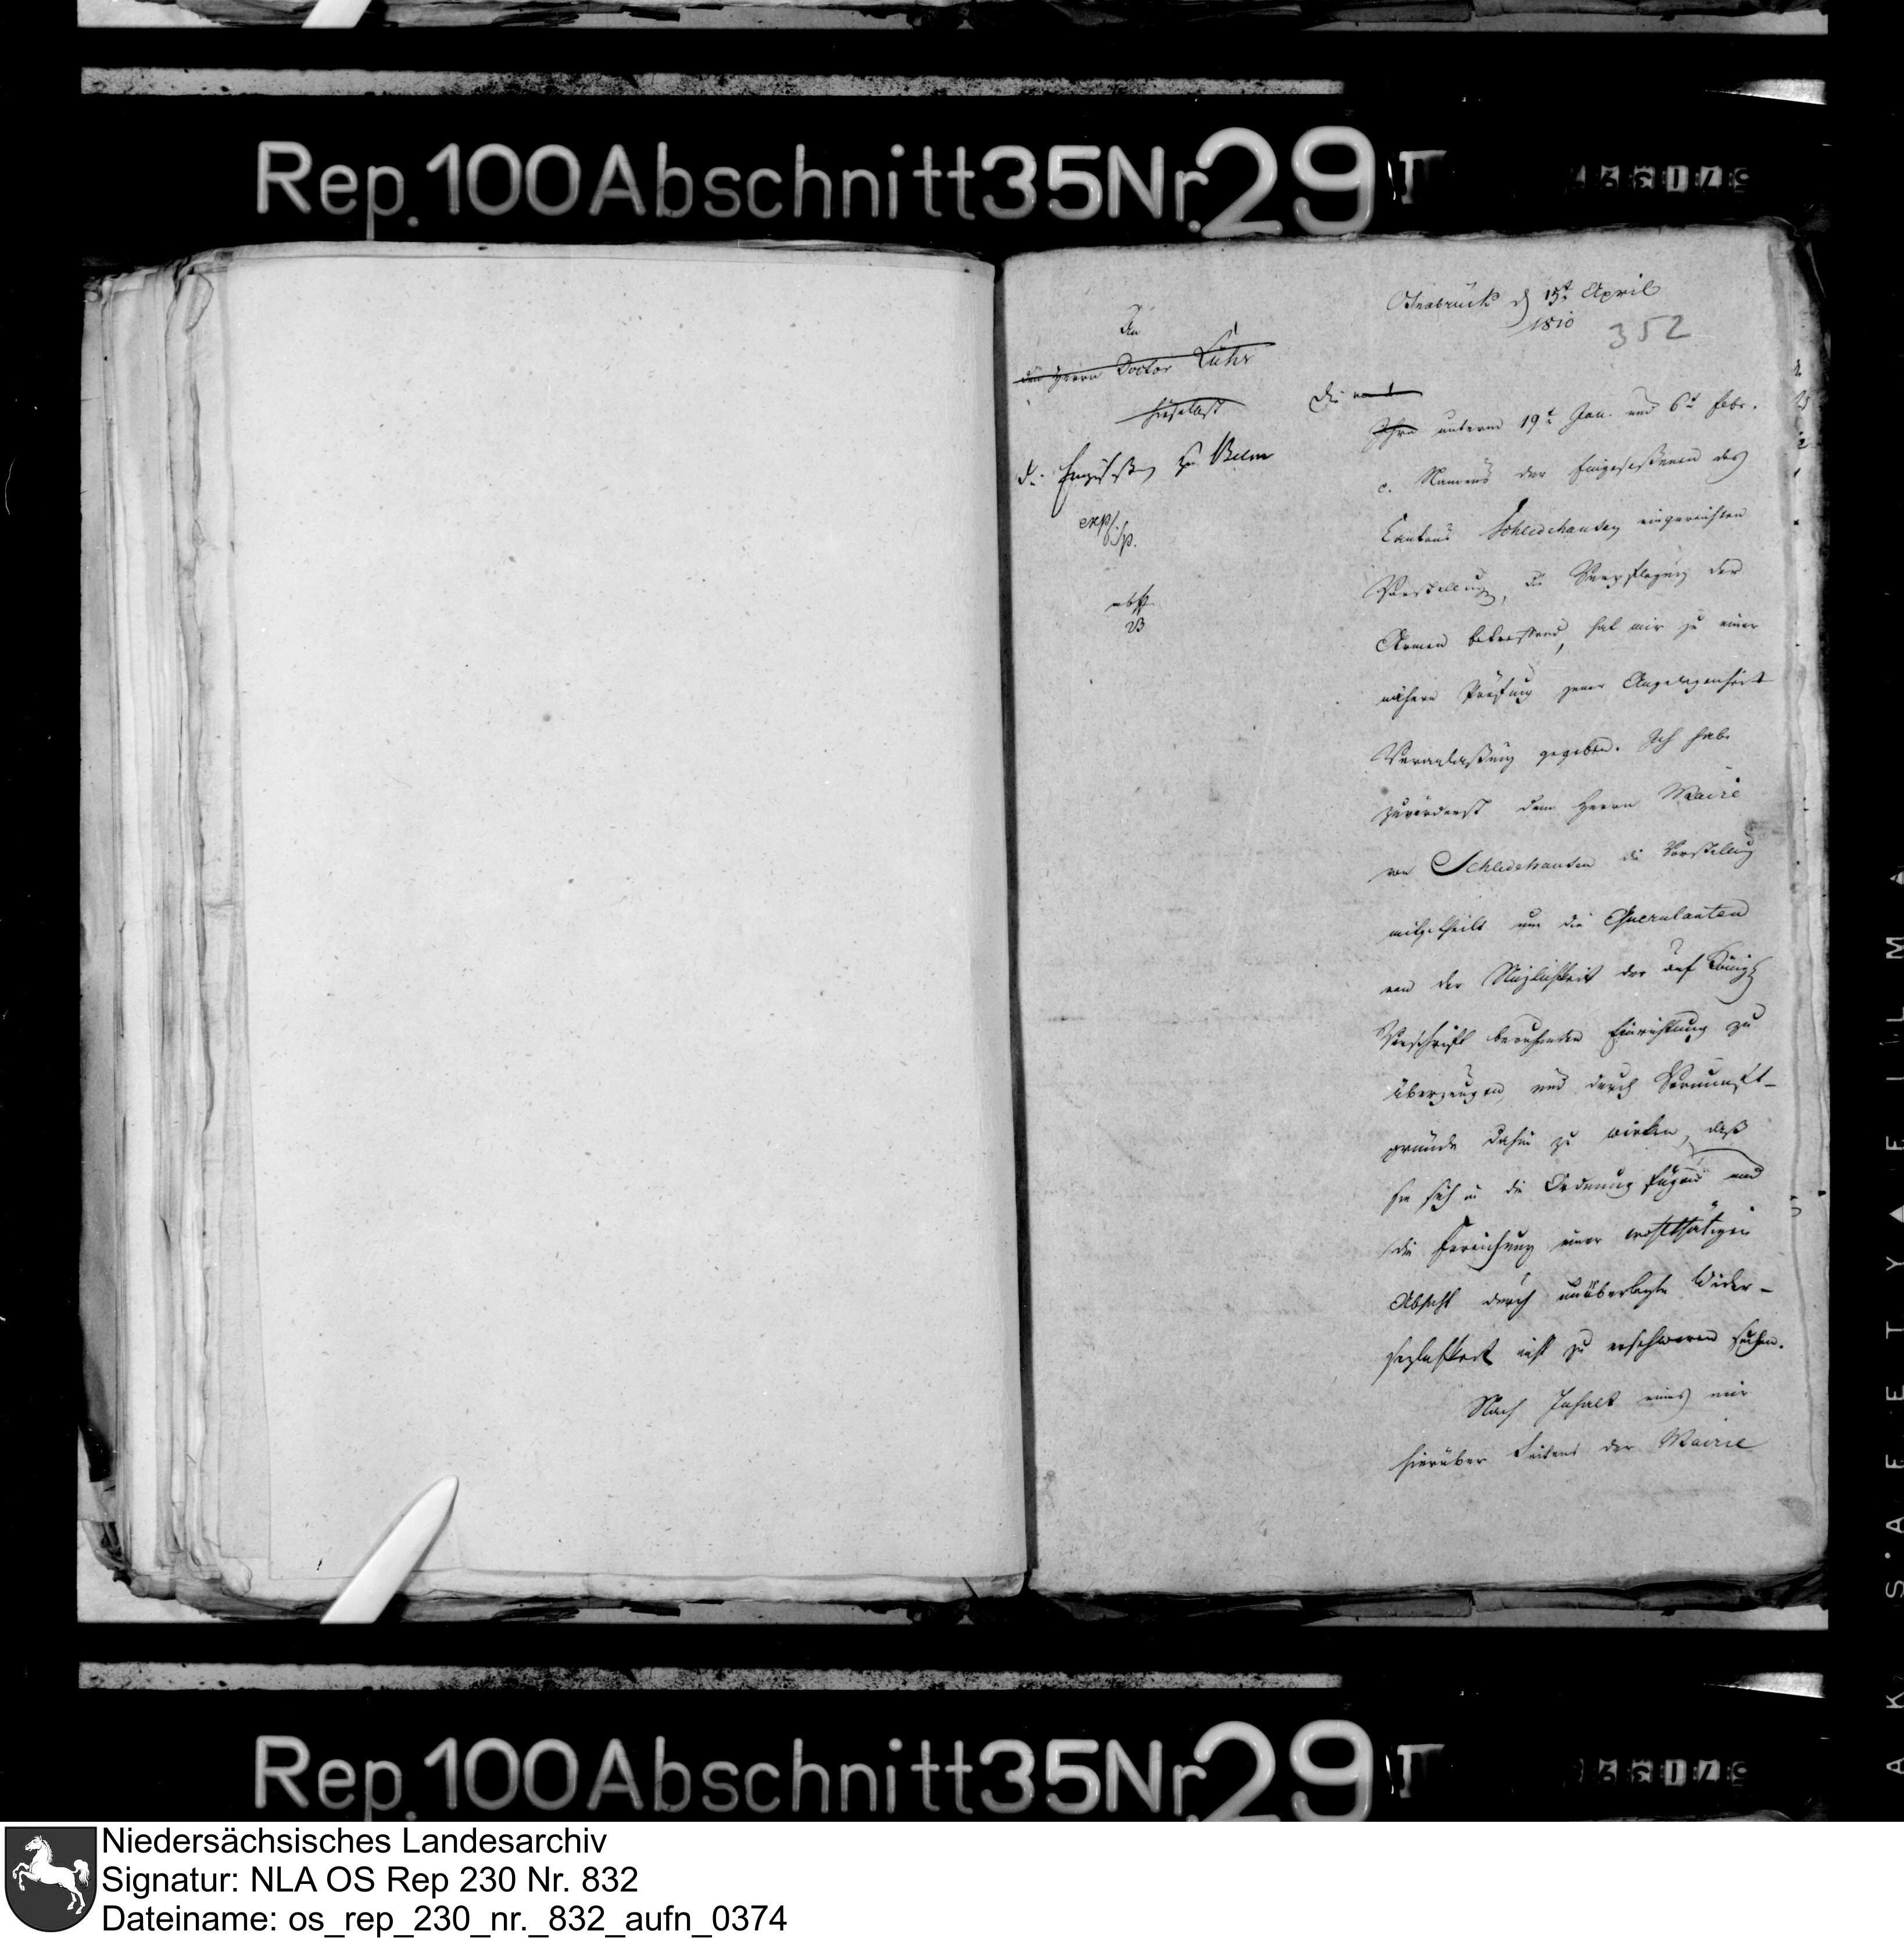 Rep. 100 Abschnitt 35 Nr. 29 I
Osnabrück d 15t April
1810
352
An
den Herrn Doctor Lühr
hieselbst
die Eingesessenen zu Belm
exp.
Die
Ihre unterm 19t Jan. und 6t Febr.
c. Namens der Eingesessenen des
Cantons Schledehausen eingereichten
Vorstellung, die Verpflegung der
Armen betreffend, hat mir zu einer
nähern Prüfung jener Angelegenheit
Veranlaßung gegeben. Ich habe
zuvörderst dem Herrn Maire
von Schledehausen die Vorstellung
mitgetheilt um die Querulanten
von der Nüzlichkeit der auf Königl
Vorschrift beruhenden Einrichtung zu
überzeugen und durch Vernunft-
gründe dahin zu wirken, daß
sie sich in die Ordnung fügen und
die Erreichung einer wohlthätigen
Absicht durch unüberlegte Wider-
sezlichkeit nicht zu erschweren suchen.
Nach Inhalt eines mir
hierüber Seitens der Mairie
Rep. 100 Abschnitt 35 Nr. 29 I
Niedersächsisches Landesarchiv
Signatur: NLA OS Rep 230 Nr. 832
Dateiname: os_rep_230_nr._832_aufn_0374